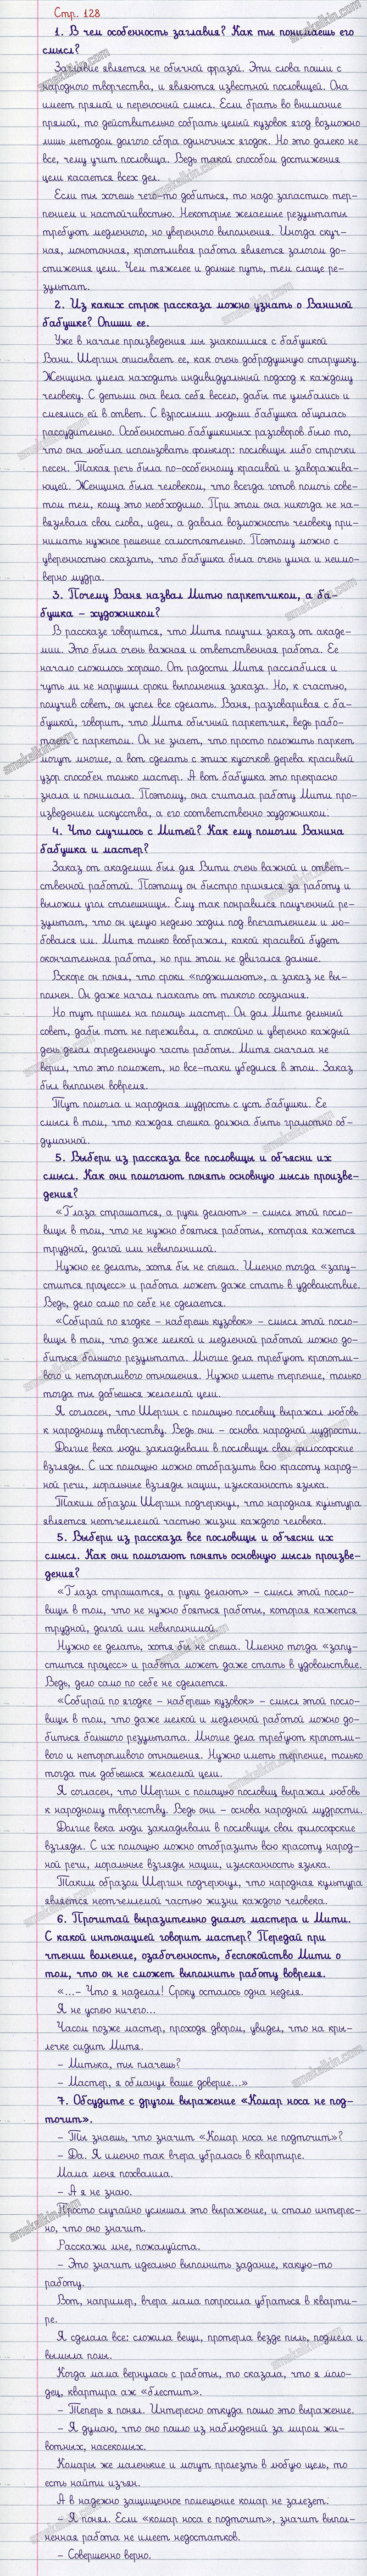 Стр. 128
1. В чем особенность заглавия? Как ты понимаешь его
смысл?
Заглавие является не обычной фразой. Эти слова пошли с
народного творчества, и являются известной пословицей. Она
имеет прямой и переносный смысл. Если брать во внимание
прямой, то действительно собрать целый кузовок ягод возможно
лишь методом долгого сбора одиночных ягодок. Но это далеко не
все, чему учит пословица. Ведь такой способом достижения
цели касается всех дел.
Если ты хочешь чего-то добиться, то надо запастись тер-
пением и настойчивостью. Некоторые желаемые результаты
требуют медленного, но уверенного выполнения. Иногда скуч-
ная, монотонная, кропотливая работа является залогом до-
стижения цели. Чем тяжелее и дольше путь, тем слаще ре-
зультат.
2. Из каких строк рассказа можно узнать о Ваниной
бабушке? Опиши ее.
Уже в начале произведения мы знакомимся с бабушкой
Вани. Шергин описывает ее, как очень добродушную старушку.
Женщина умела находить индивидуальный подход к каждому
человеку. С детьми она вела себя весело, дабы те улыбались и
смеялись ей в ответ. С взрослыми людьми бабушка общалась
рассудительно. Особенностью бабушкиных разговоров было то,
что она любила использовать фольклор: пословицы либо строчки
песен. Такая речь была по-особенному красивой и заворажива-
ющей. Женщина была человеком, что всегда готов помочь сове-
том тем, кому это необходимо. При этом она никогда не на-
вязывала свои слова, идеи, а давала возможность человеку при-
нимать нужное решение самостоятельно. Поэтому можно с
уверенностью сказать, что бабушка была очень умна и неимо-
верно мудра.
3. Почему Ваня назвал Митю паркетчиком, а ба-
бушка – художником?
В рассказе говорится, что Митя получил заказ от акаде-
мии. Это была очень важная и ответственная работа. Ее
начало сложилось хорошо. От радости Митя расслабился и
чуть ли не нарушил сроки выполнения заказа. Но, к счастью,
получив совет, он успел все сделать. Ваня, разговаривая с ба-
бушкой, говорит, что Митя обычный паркетчик, ведь рабо-
тает с паркетом. Он не знает, что просто положить паркет
могут многие, а вот сделать с этих кусочков дерева красивый
узор способен только мастер. А вот бабушка это прекрасно
знала и понимала. Поэтому, она считала работу Мити про-
изведением искусства, а его соответственно художником.
4. Что случилось с Митей? Как ему помогли Ванина
бабушка и мастер?
Заказ от академии был для Вити очень важной и ответ-
ственной работой. Поэтому он быстро принялся за работу и
выложил угол столешницы. Ему так понравился полученный ре-
зультат, что он целую неделю ходил под впечатлением и лю-
бовался им. Митя только воображал, какой красивой будет
окончательная работа, но при этом не двигался дальше.
Вскоре он понял, что сроки «поджимают», а заказ не вы-
полнен. Он даже начал плакать от такого осознания.
Но тут пришел на помощь мастер. Он дал Мите дельный
совет, дабы тот не переживал, а спокойно и уверенно каждый
день делал определенную часть работы. Митя сначала не
верил, что это поможет, но все-таки убедился в этом. Заказ
был выполнен вовремя.
Тут помогла и народная мудрость с уст бабушки. Ее
смысл в том, что каждая спешка должна быть грамотно об-
думанной.
5. Выбери из рассказа все пословицы и объясни их
смысл. Как они помогают понять основную мысль произве-
дения?
«Глаза страшатся, а руки делают» – смысл этой посло-
вицы в том, что не нужно бояться работы, которая кажется
трудной, долгой или невыполнимой.
Нужно ее делать, хотя бы не спеша. Именно тогда «запу-
стится процесс» и работа может даже стать в удовольствие.
Ведь, дело само по себе не сделается.
«Собирай по ягодке – наберешь кузовок» – смысл этой посло-
вицы в том, что даже мелкой и медленной работой можно до-
биться большого результата. Многие дела требуют кропотли-
вого и неторопливого отношения. Нужно иметь терпение, только
тогда ты добьешься желаемой цели.
Я согласен, что Шергин с помощью пословиц выражал любовь
к народному творчеству. Ведь они – основа народной мудрости.
Долгие века люди закладывали в пословицы свои философские
взгляды. С их помощью можно отобразить всю красоту народ-
ной речи, моральные взгляды нации, изысканность языка.
Таким образом Шергин подчеркнул, что народная культура
является неотъемлемой частью жизни каждого человека.
5. Выбери из рассказа все пословицы и объясни их
смысл. Как они помогают понять основную мысль произве-
дения?
«Глаза страшатся, а руки делают» – смысл этой посло-
вицы в том, что не нужно бояться работы, которая кажется
трудной, долгой или невыполнимой.
Нужно ее делать, хотя бы не спеша. Именно тогда «запу-
стится процесс» и работа может даже стать в удовольствие.
Ведь, дело само по себе не сделается.
«Собирай по ягодке – наберешь кузовок» – смысл этой посло-
вицы в том, что даже мелкой и медленной работой можно до-
биться большого результата. Многие дела требуют кропотли-
вого и неторопливого отношения. Нужно иметь терпение, только
тогда ты добьешься желаемой цели.
Я согласен, что Шергин с помощью пословиц выражал любовь
к народному творчеству. Ведь они – основа народной мудрости.
Долгие века люди закладывали в пословицы свои философские
взгляды. С их помощью можно отобразить всю красоту народ-
ной речи, моральные взгляды нации, изысканность языка.
Таким образом Шергин подчеркнул, что народная культура
является неотъемлемой частью жизни каждого человека.
6. Прочитай выразительно диалог мастера и Мити.
С какой интонацией говорит мастер? Передай при
чтении волнение, озабоченность, беспокойство Мити о
том, что он не сможет выполнить работу вовремя.
«...– Что я наделал! Сроку осталось одна неделя.
Я не успею ничего...
Часом позже мастер, проходя двором, увидел, что на кры-
лечке сидит Митя.
– Митька, ты плачешь?
– Мастер, я обманул ваше доверие...»
7. Обсудите с другом выражение «Комар носа не под-
точит».
– Ты знаешь, что значит «Комар носа не подточит»?
– Да. Я именно так вчера убралась в квартире.
Мама меня похвалила.
– А я не знаю.
Просто случайно услышал это выражение, и стало интерес-
но, что оно значит.
Расскажи мне, пожалуйста.
– Это значит идеально выполнить задание, какую-то
работу.
Вот, например, вчера мама попросила убраться в кварти-
ре.
Я сделала все: сложила вещи, протерла везде пыль, подмела и
вымыла полы.
Когда мама вернулась с работы, то сказала, что я моло-
дец, квартира аж «блестит».
– Теперь я понял. Интересно откуда пошло это выражение.
– Я думаю, что оно пошло из наблюдений за миром жи-
вотных, насекомых.
Комары же маленькие и могут пролезть в любую щель, то
есть найти изъян.
А в надежно защищенное помещение комар не залезет.
– Я понял. Если «комар носа е подточит», значит выпол-
ненная работа не имеет недостатков.
– Совершенно верно.
smekalkin.com